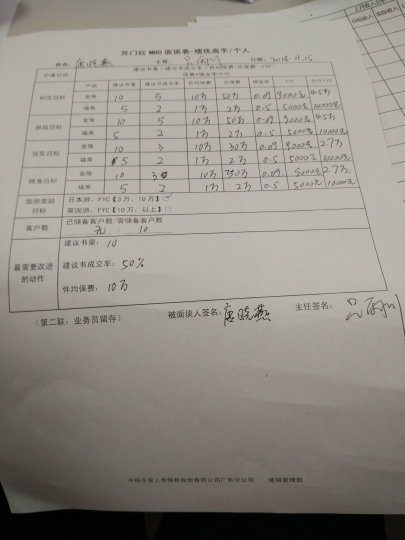 开门红 MRI 面谈表-绩优高手/个人
姓名： 唐晓燕 主管： 日期：2018.11.15
价值公式 建议书量×建议书成交率×件均保费=总保费 FYC
保费×佣金率=FYC
产品 建议书量 建议书成交率 件均保费 总保费 佣金率 FYC 合计FYC
目标 金瑞 10 5 10万 50万 0.09 4.5万
福满 5 2 1万 2万 0.5 5000元 10000元
挑战目标 金瑞 10 5 10万 50万 0.09 4.5万
福满 5 2 1万 2万 0.5 5000元 10000元
目标 金瑞 10 3 10万 30万 0.09 9000元 2.7万
福满 5 2 1万 2万 0.5 5000元 10000元
目标 金瑞 10 3 10万 30万 0.09 9000元 2.7万
福满 5 2 1万 2万 0.5 5000元 10000元
旅游奖励目标 日本游，FYC【3万，10万】
英国游，FYC【10万，以上】□
客户数 已储备客户数/需储备客户数
/ 10
最需要改进的动作
建议书量：10
建议书成交率：50%
件均保费：10万
（第二联：业务员留存） 被面谈人签名：唐晓燕 主任签名：
中国平安人寿保险股份有限公司广东分公司 营销管理部